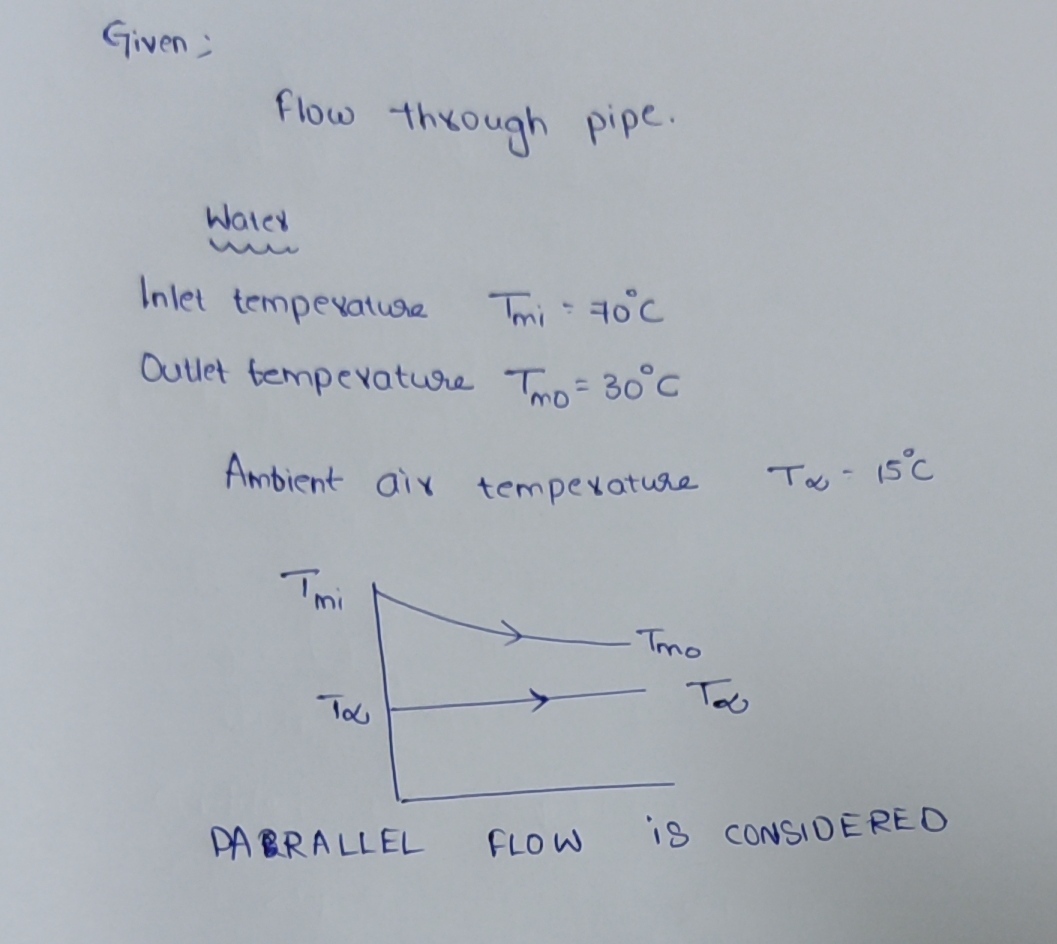 Given :
Flow through pipe.
Water
Inlet temperature Tmi = 70°C
Outlet temperature Tmo = 30°C
Ambient air temperature T∞ = 15°C
Tmi
Tmo
T∞ T∞
PARRALLEL FLOW is CONSIDERED